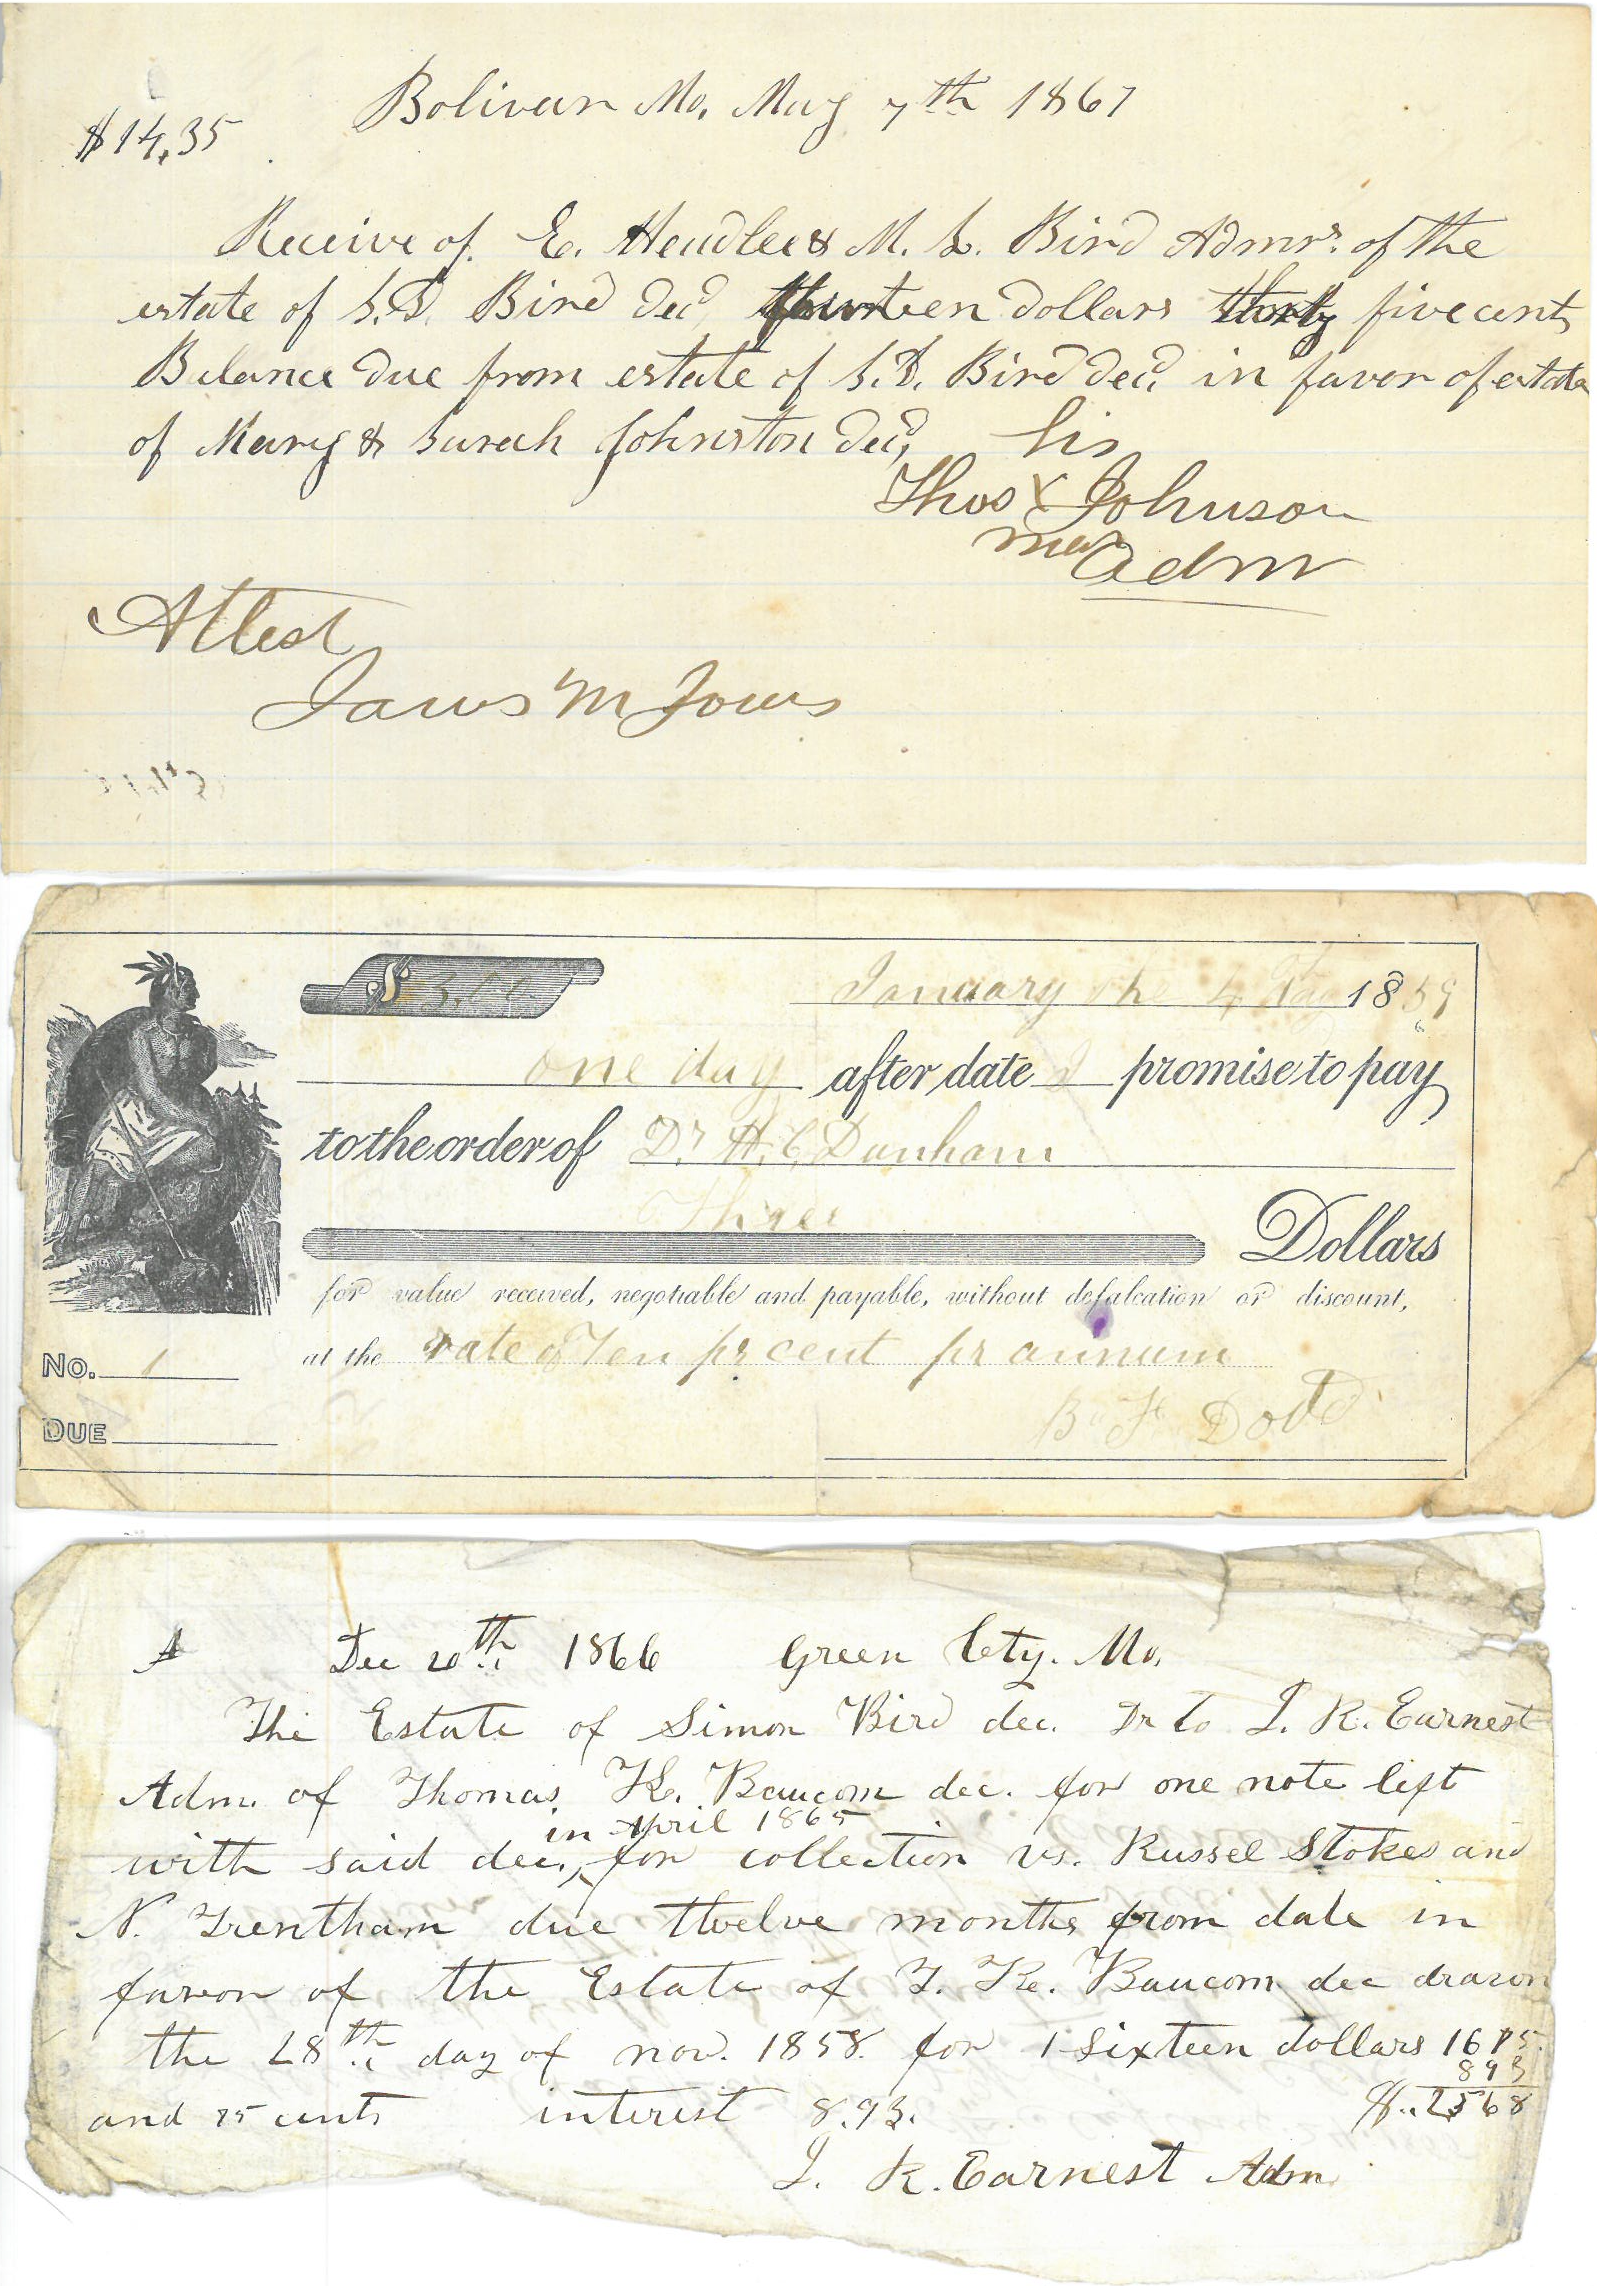 Bolivar Mo. May 7th 1867
$14,35
Receive of E. Headlee & M. L. Bird Admrs. of the
estate of S.S. Bird decd fourteen dollars thirty five cents
Balance due from estate of S.S. Bird decd, in favor of estate
of Mary & Sarah Johnston decd,
his
Thos X Johnson
mark
Adm
Attest
James M Jones
$ 3.00
January the 4 Day 1859
one day after date I promise to pay
to the order of Dr H. C. Dunham
Three
Dollars
for value received, negotiable and payable, without defalcation or discount,
No. 1 at the rate of Ten pr cent pr annum
B. F. Dodd
DUE
Dec 20th 1866 Green Cty. Mo.
The Estate of Simon Bird dec. Dr to J. R. Earnest
Adm. of Thomas K. Baucom dec. for one note left
in April 1865
with said dec., for collection vs. Russel Stokes and
N. Trentham due twelve months from date in
favor of the Estate of T. K. Baucom dec drawn
the 28th day of nov. 1858. for sixteen dollars 1675
893
and 75 cents interest 8.93. $..2568
J. R. Earnest Adm